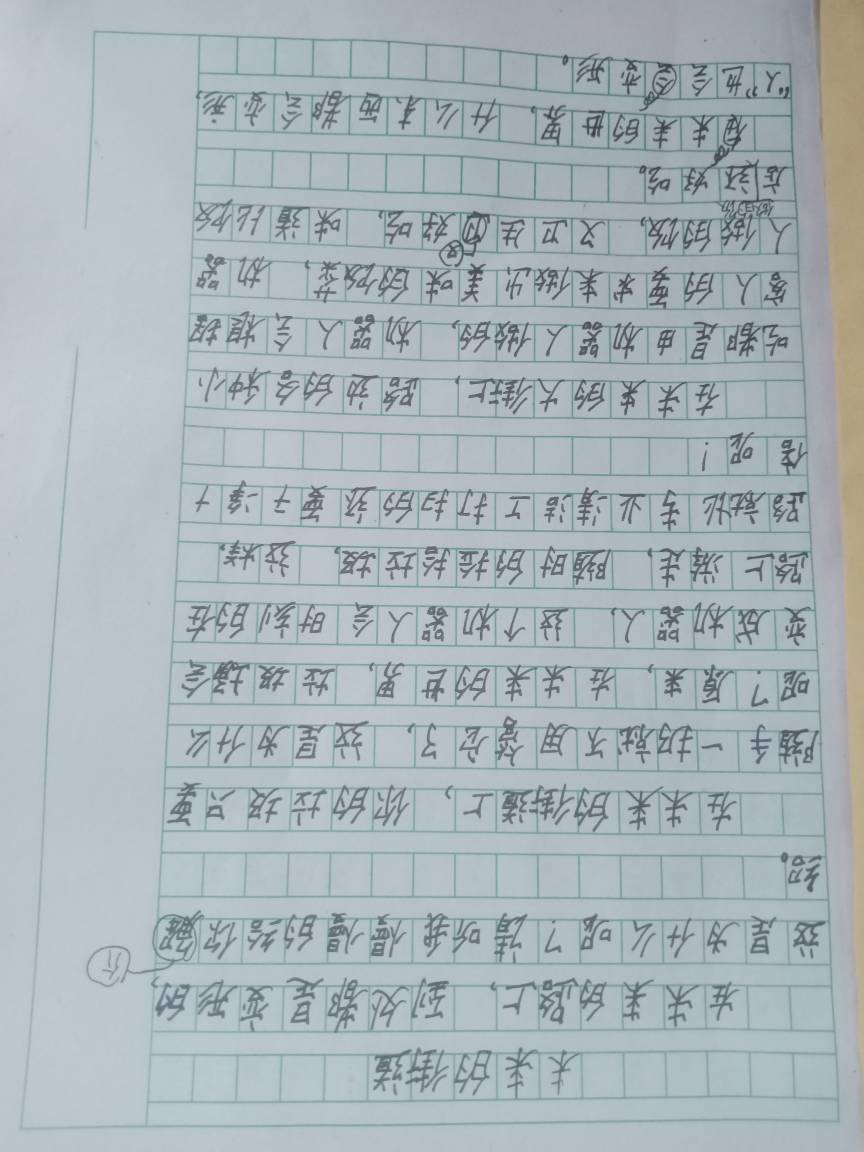 未来的街道
在未来的路上,到处都是变形的,
这是为什么呢?请听我慢慢的给你解
介
绍。
在未来的街道上,你的垃圾只要
随手一扔就不用管它了,这是为什么
呢?原来,在未来的世界,垃圾桶会
变成机器人,这个机器人会时刻的在
路上游走,随时的捡拾垃圾,这样,
路就比专业清洁工打扫的还要干净十
倍呢!
在未来的大街上,路边的各种小
吃都是由机器人做的,机器人会根据
客人的要求来做出美味的饭菜,机器
又
人做的饭,又卫生好吃,味道比饭
店还好吃。
未来的世界,什么东西都会变形,
“人”也会变形。